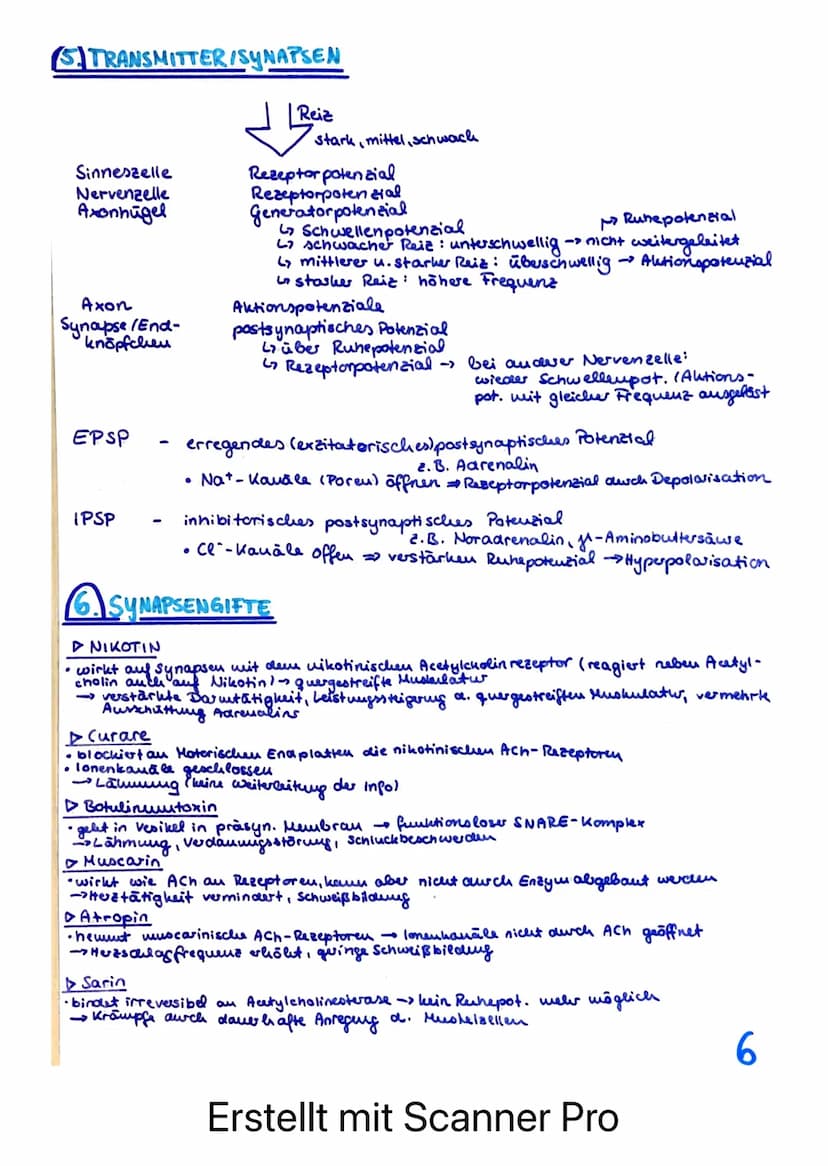 5. TRANSMITTER/SYNAPSEN
Reiz
stark, mittel, schwach
Sinneszelle Rezeptorpotenzial
Nervenzelle Rezeptorpotenzial
Axonhügel Generatorpotenzial
↳ Schwellenpotenzial ↦ Ruhepotenzial
↳ schwacher Reiz: unterschwellig → nicht weitergeleitet
↳ mittlerer u. starker Reiz: überschwellig → Aktionspotenzial
↳ starker Reiz: höhere Frequenz
Axon Aktionspotenziale
Synapse/End- postsynaptisches Potenzial
knöpfchen ↳ über Ruhepotenzial
↳ Rezeptorpotenzial → bei anderer Nervenzelle:
wieder Schwellenpot. (Aktions-
pot. mit gleicher Frequenz ausgelöst
EPSP - erregendes (exzitatorisches) postsynaptisches Potenzial
z.B. Adrenalin
• Na⁺-Kanäle (Poren) öffnen ⇒ Rezeptorpotenzial durch Depolarisation
IPSP - inhibitorisches postsynaptisches Potenzial
z.B. Noradrenalin, γ-Aminobuttersäure
• Cl⁻-Kanäle offen ⇒ verstärken Ruhepotenzial → Hyperpolarisation
6. SYNAPSENGIFTE
▷ NIKOTIN
• wirkt auf Synapsen mit dem nikotinischen Acetylcholinrezeptor (reagiert neben Acetyl-
cholin auch auf Nikotin) → quergestreifte Muskulatur
→ verstärkte Darmtätigkeit, Leistungssteigerung d. quergestreiften Muskulatur, vermehrte
Ausschüttung Adrenalins
▷ Curare
• blockiert an Motorischen Endplatten die nikotinischen ACh-Rezeptoren
• Ionenkanäle geschlossen
→ Lähmung (keine Weiterleitung der Info)
▷ Botulinumtoxin
• geht in Vesikel in präsyn. Membran → funktionsloser SNARE-Komplex
→ Lähmung, Verdauungsstörung, Schluckbeschwerden
▷ Muscarin
• wirkt wie ACh an Rezeptoren, kann aber nicht durch Enzym abgebaut werden
→ Herztätigkeit vermindert, Schweißbildung
▷ Atropin
• hemmt muscarinische ACh-Rezeptoren → Ionenkanäle nicht durch ACh geöffnet
→ Herzschlagfrequenz erhöht, geringe Schweißbildung
▷ Sarin
• bindet irreversibel an Acetylcholinesterase → kein Ruhepot. mehr möglich
→ Krämpfe durch dauerhafte Anregung d. Muskelzellen
6
Erstellt mit Scanner Pro